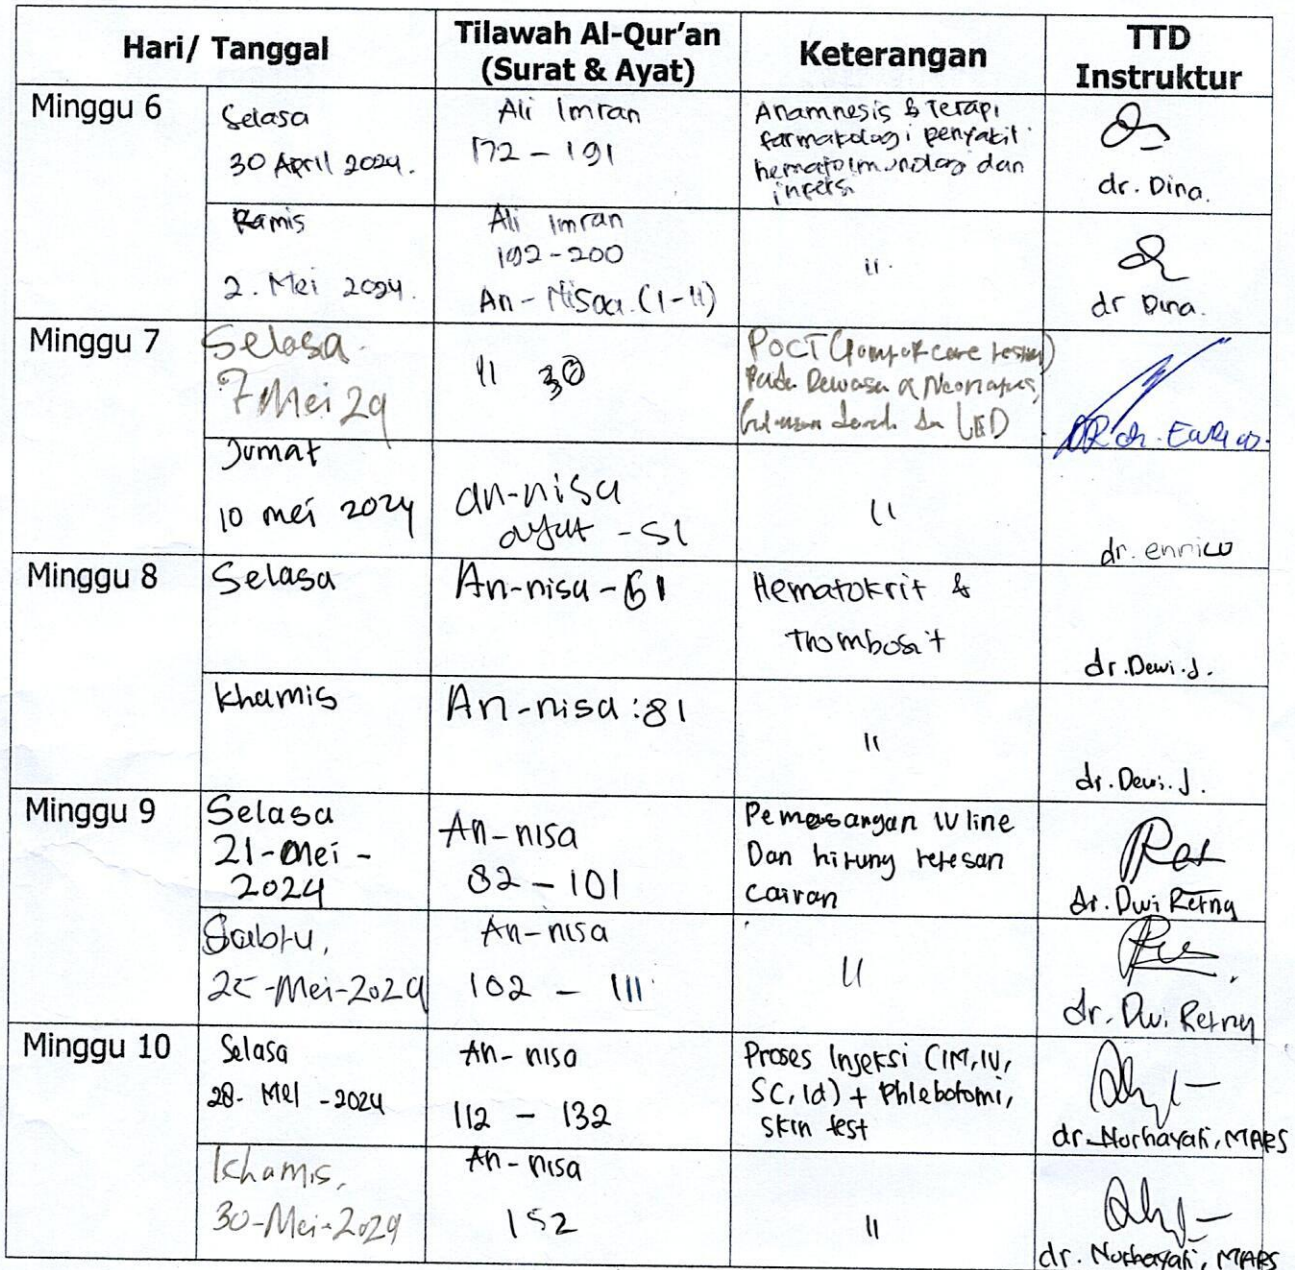 Hari/ Tanggal
Tilawah Al-Qur'an
(Surat & Ayat)
Keterangan
TTD
Instruktur
Minggu 6
Selasa
30 April 2024.
Ali Imran
172 - 191
Anamnesis & Terapi
farmakologi penyakit
hematoimunologi dan
infeksi
dr. Dina.
Kamis
2. Mei 2024.
Ali Imran
192-200
An-Nisaa. (1-11)
11.
dr Dina.
Minggu 7
Selasa.
7 Mei 24
11 30
POCT
Pada Dewasa & Neonatus,
darah LED
Jumat
10 mei 2024
an-nisa
ayat - 51
11
dr. enrico
Minggu 8
Selasa
An-nisa - 61
Hematokrit &
Thombosit
dr. Dewi. J.
Khamis
An-nisa : 81
11
dr. Dewi. J.
Minggu 9
Selasa
21-Mei-
2024
An-nisa
82 - 101
Pemasangan IV line
Dan hitung tetesan
cairan
dr. Dwi Retno
Sabtu,
25-Mei-2024
An-nisa
102 - 111
11
dr. Dwi Retno
Minggu 10
Selasa
28. MeI -2024
An-nisa
112 - 132
Proses Injeksi (IM, IV,
SC, Id) + Phlebotomi,
skin test
dr. Nurhayati, MARS
Khamis,
30-Mei-2024
An-nisa
152
11
dr. Nurhayati, MARS